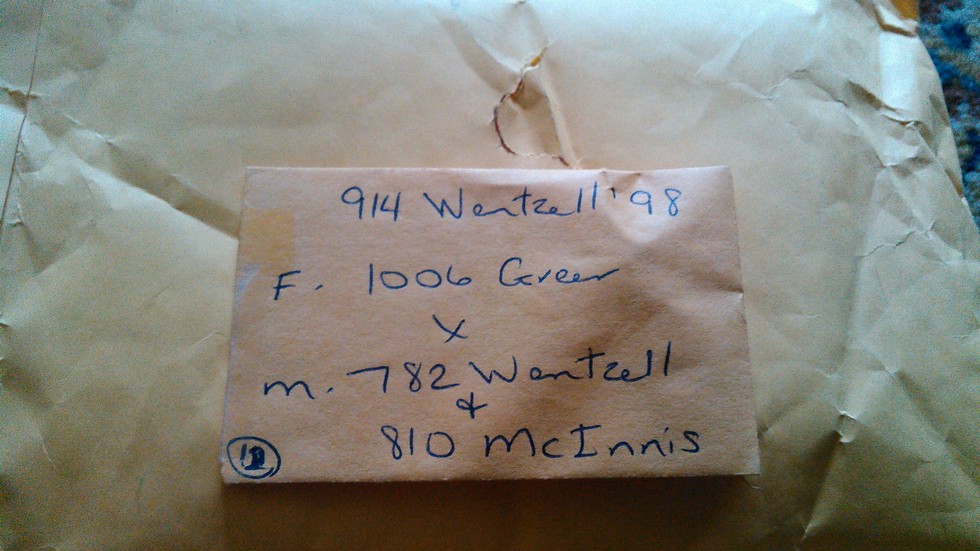 914 Wentzell '98
F. 1006 Greer
X
m. 782 Wentzell
&
810 McInnis